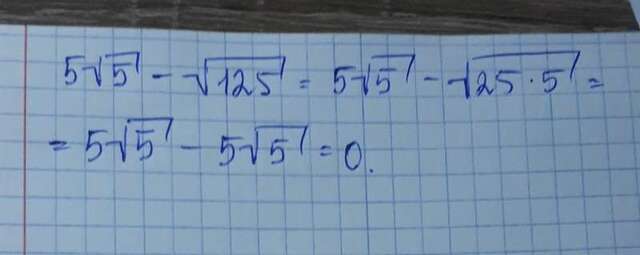 5√5 - √125 = 5√5 - √25·5 =
= 5√5 - 5√5 = 0.